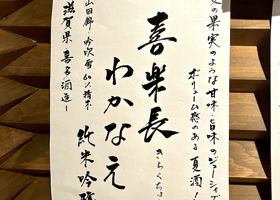 の果実のような甘味・旨味のジューシーな
ボリューム感のある夏酒!
喜楽長
きらくちょ
わかなえ
純米吟醸
山田錦 吟吹雪
滋賀県 喜多酒造